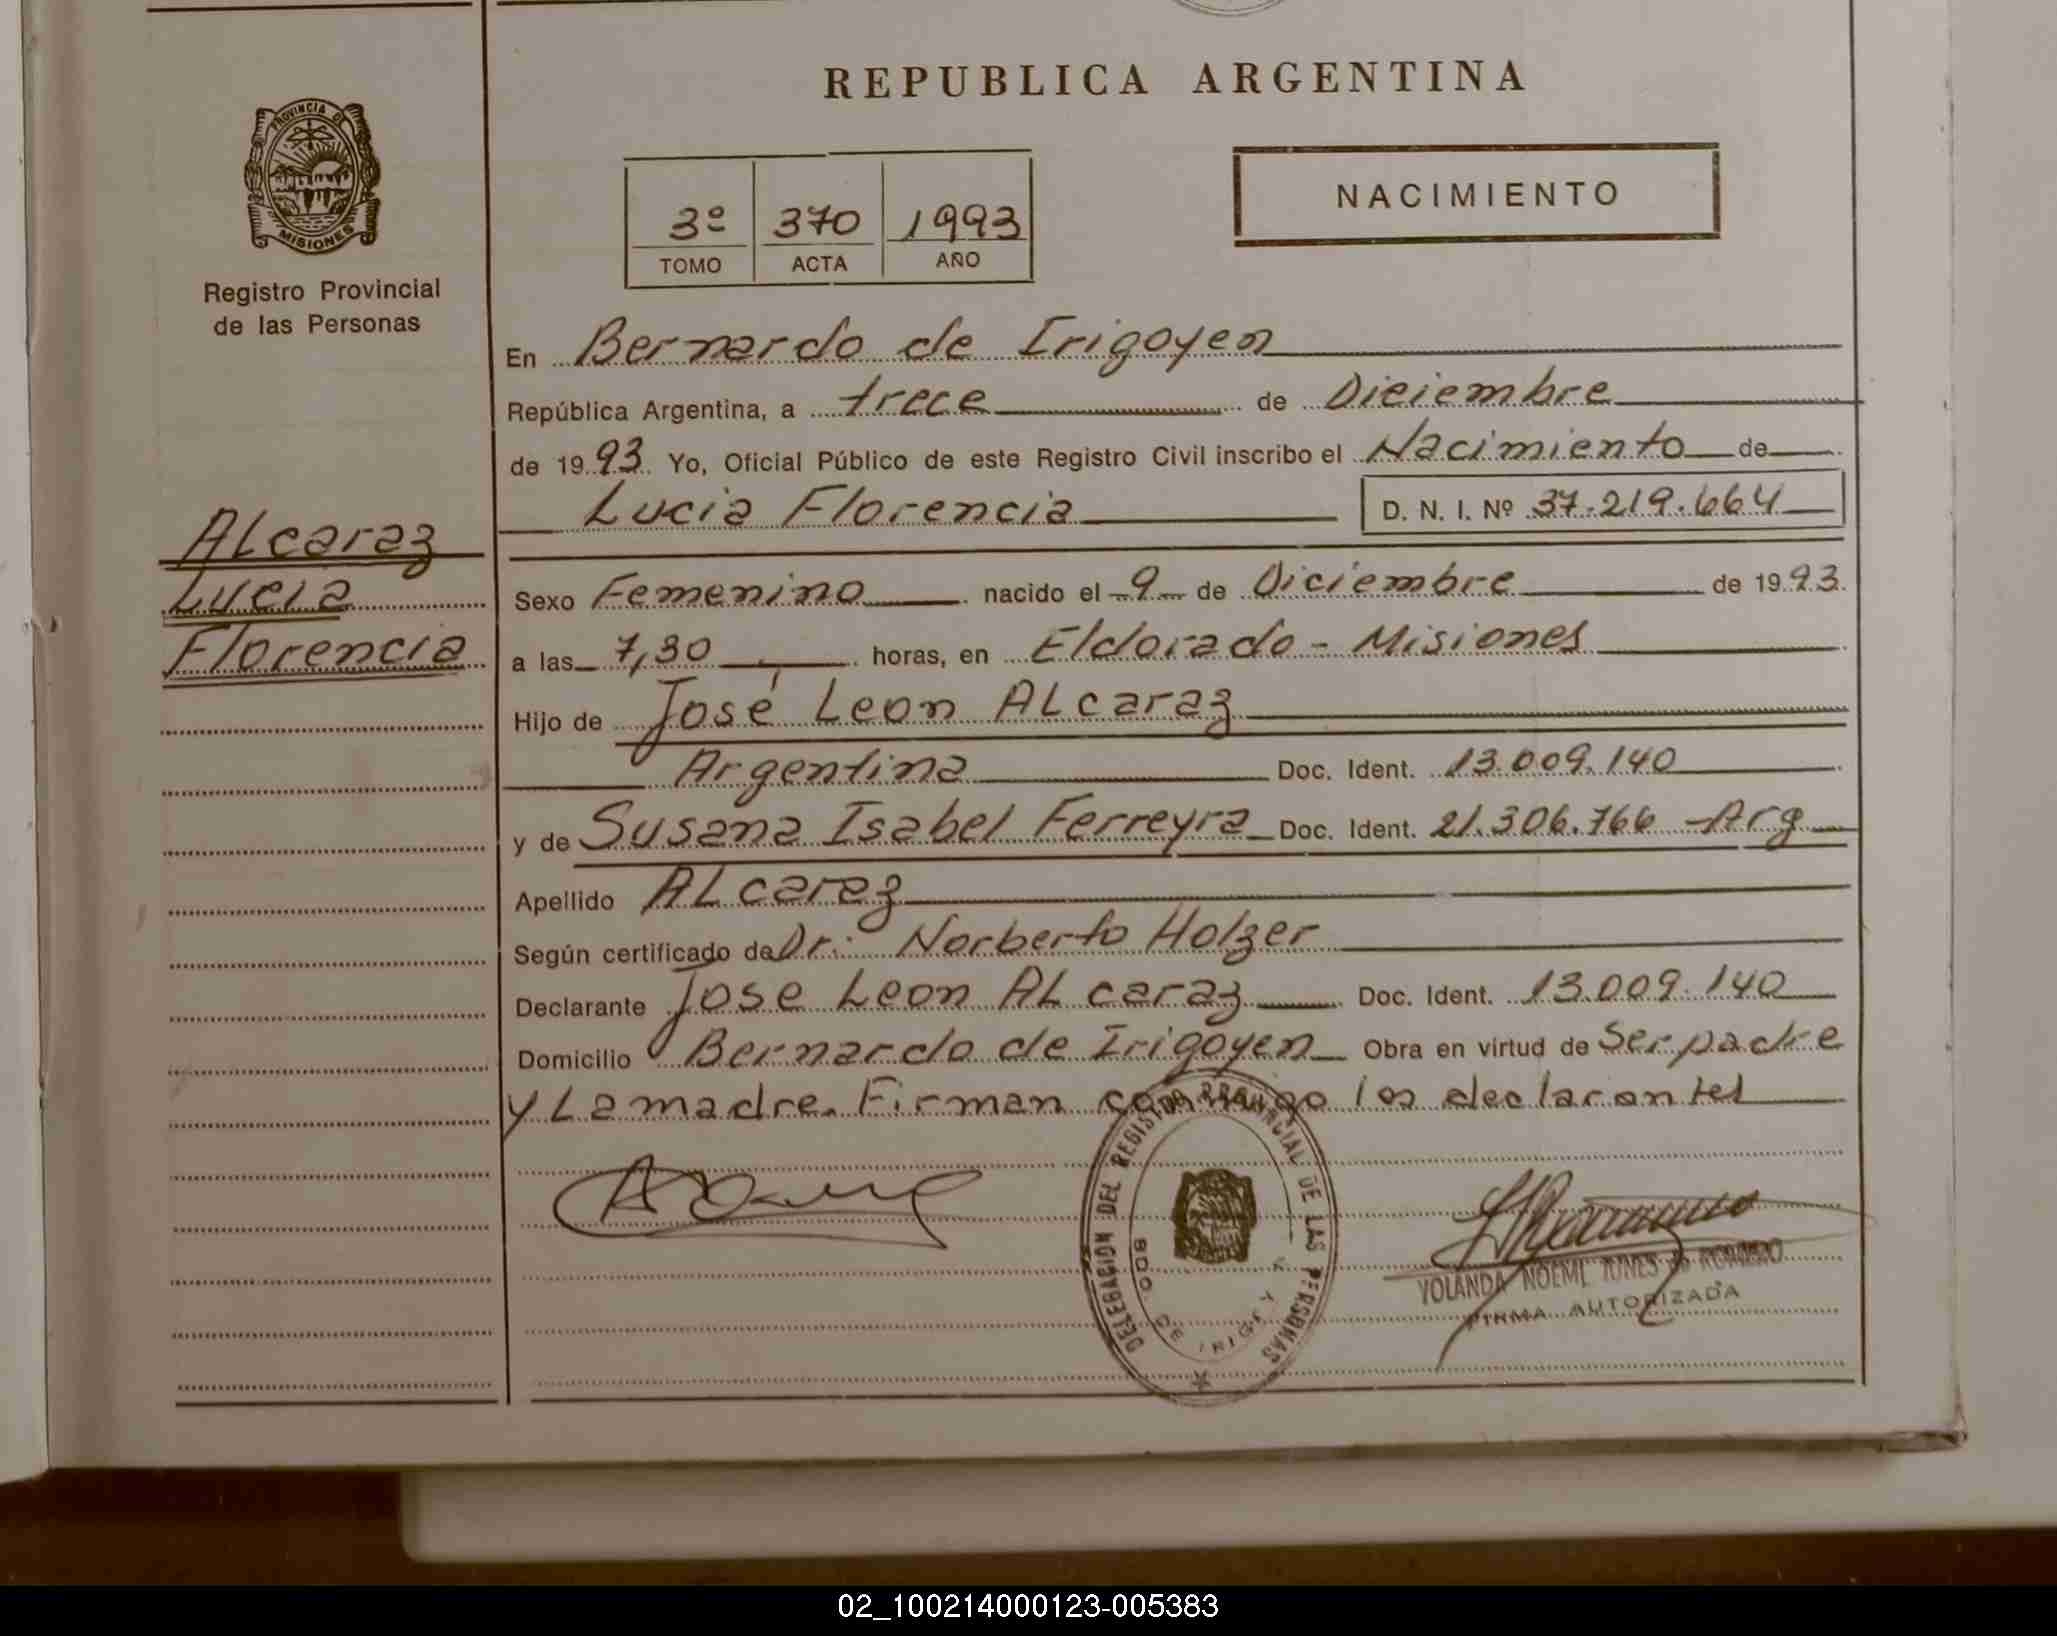 REPUBLICA ARGENTINA
PROVINCIA DE
MISIONES
Registro Provincial
de las Personas
3º 370 1993
TOMO ACTA AÑO
NACIMIENTO
En Bernardo de Irigoyen
República Argentina, a trece de Diciembre
de 19 93 Yo, Oficial Público de este Registro Civil inscribo el Nacimiento de
Lucia Florencia D. N. I. Nº 37.219.664
Alcaraz
Lucia
Florencia
Sexo Femenino nacido el 9 de Diciembre de 19 93
a las 7,30 horas, en Eldorado - Misiones
Hijo de José Leon Alcaraz
Argentina Doc. Ident. 13.009.140
y de Susana Isabel Ferreyra Doc. Ident. 21.306.766 - Arg
Apellido Alcarez
Según certificado de Dr. Norberto Holzer
Declarante Jose Leon Alcaraz Doc. Ident. 13.009.140
Domicilio Bernardo de Irigoyen Obra en virtud de Ser padre
y La madre. Firman conmigo los declarantes
DELEGACION DEL REGISTRO PROVINCIAL DE LAS PERSONAS
BDO. DE IRIGOY
YOLANDA NOEMI de ROMERO
FIRMA AUTORIZADA
02_100214000123-005383